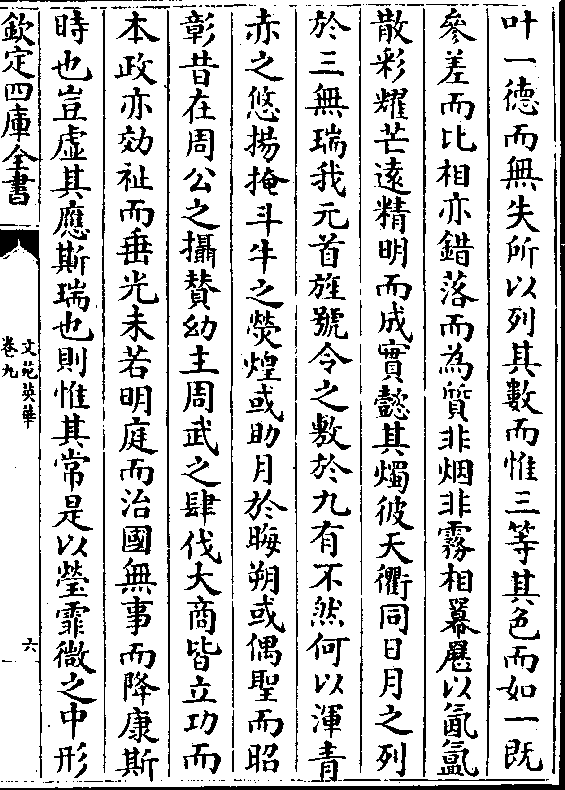 叶一德而無失所以列其數而惟三等其色而如一既
參差而比相亦錯落而為質非烟非霧相羃䍥以氤氲
散彩耀芒遠精明而成實懿其燭彼天衢同日月之列
於三無瑞我元首旌號令之敷於九有不然何以渾青
赤之悠揚掩斗牛之熒煌或助月於晦朔或偶聖而昭
彰昔在周公之攝贊幼主周武之肆伐大商皆立功而
本政亦効祉而垂光未若明庭而治國無事而降康斯
時也豈虚其應斯瑞也則惟其常是以瑩霏微之中形
欽定四庫全書
文苑英華
卷九
六